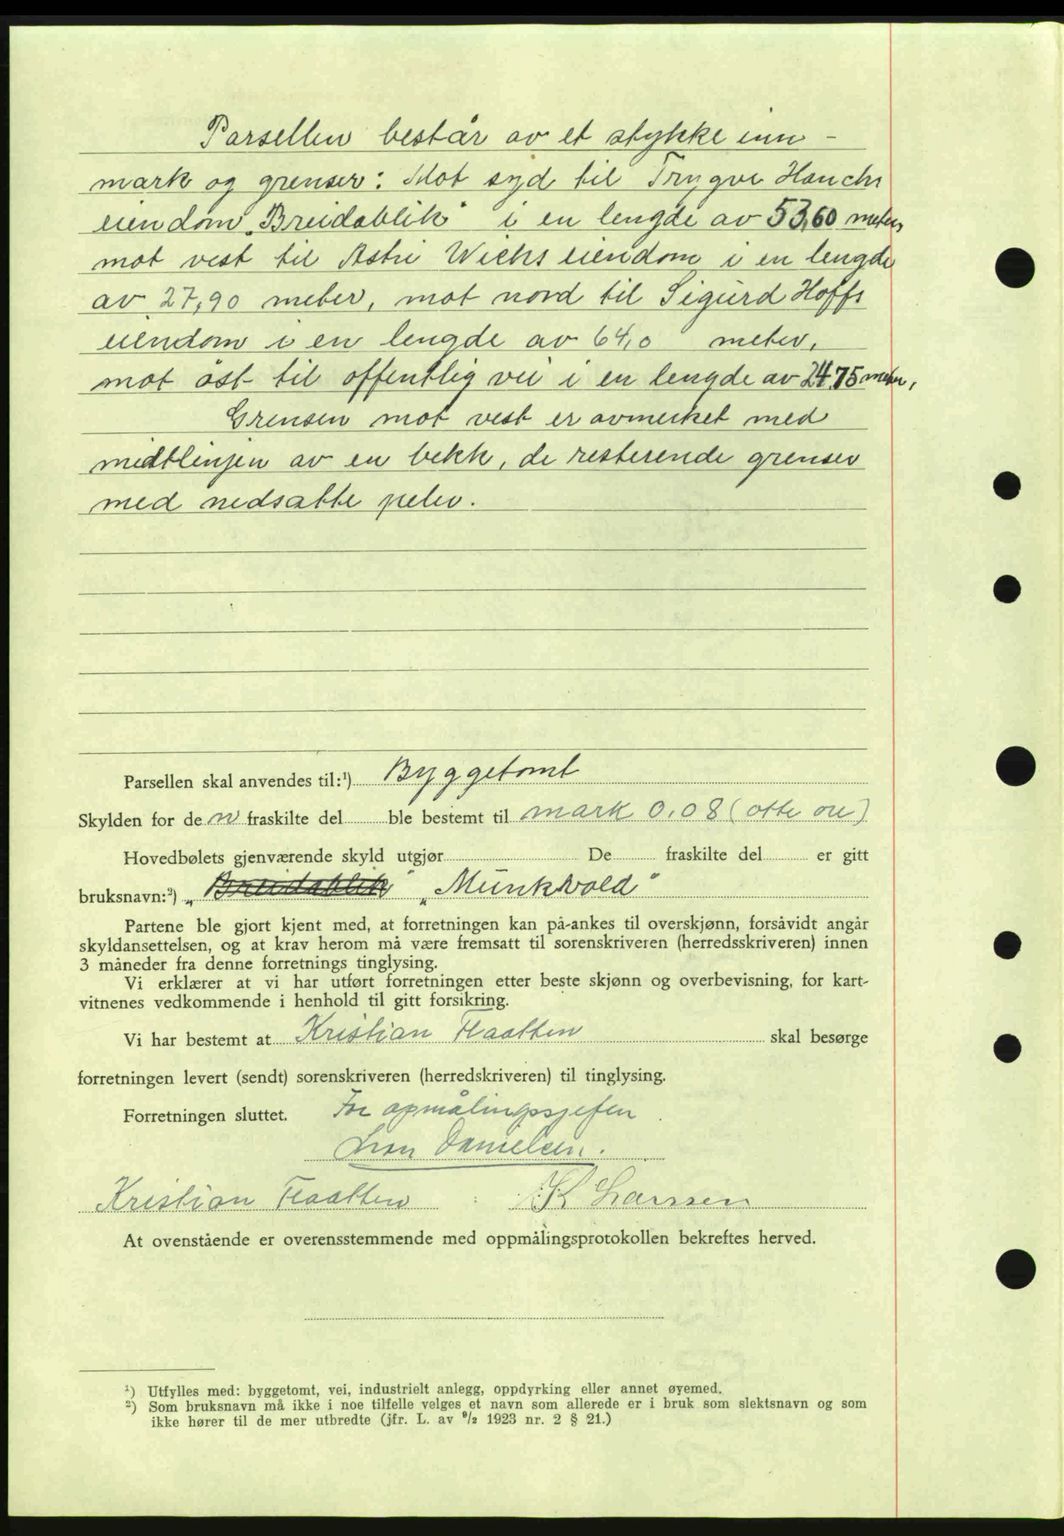 Parsellen består av et stykke inn-
mark og grenser: Mot syd til Trygve Hauchs
eiendom „Breidablik" i en lengde av 53,60 meter,
mot vest til Astri Wichs eiendom i en lengde
av 27,90 meter, mot nord til Sigurd Hoffs
eiendom i en lengde av 64,0 meter,
mot øst til offentlig vei i en lengde av 24,75 meter,
Grensen mot vest er avmerket med
midtlinjen av en bekk, de resterende grenser
med nedsatte peler.
Parsellen skal anvendes til:¹) Byggetomt
Skylden for de n fraskilte del ble bestemt til mark 0,08 (otte øre)
Hovedbølets gjenværende skyld utgjør De fraskilte del er gitt
bruksnavn:²) „Breidablik" „Munkvold"
Partene ble gjort kjent med, at forretningen kan på-ankes til overskjønn, forsåvidt angår
skyldansettelsen, og at krav herom må være fremsatt til sorenskriveren (herredsskriveren) innen
3 måneder fra denne forretnings tinglysing.
Vi erklærer at vi har utført forretningen etter beste skjønn og overbevisning, for kart-
vitnenes vedkommende i henhold til gitt forsikring.
Vi har bestemt at Kristian Flaatten skal besørge
forretningen levert (sendt) sorenskriveren (herredskriveren) til tinglysing.
Forretningen sluttet. For opmålingssjefen
Danielsen.
Kristian Flaatten K Larssen
At ovenstående er overensstemmende med oppmålingsprotokollen bekreftes herved.
¹) Utfylles med: byggetomt, vei, industrielt anlegg, oppdyrking eller annet øyemed.
²) Som bruksnavn må ikke i noe tilfelle velges et navn som allerede er i bruk som slektsnavn og som
ikke hører til de mer utbredte (jfr. L. av ⁹/₂ 1923 nr. 2 § 21.)